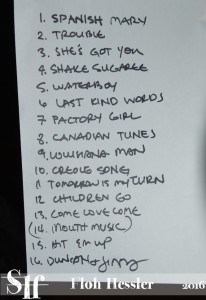 1. SPANISH MARY
2. TROUBLE
3. SHE'S GOT YOU
4. SHAKE SUGAREE
5. WATERBOY
6 LAST KIND WORDS
7 FACTORY GIRL
8. CANADIAN TUNES
9. LOUISIANA MAN
10. CREOLE SONG
11 TOMORROW IS MY TURN
12 CHILDREN GO
13. COME LOVE COME
(14. MOUTH MUSIC)
15. HIT 'EM UP
16. DUNCAN & JIMMY
SHf Floh Hessler 2016